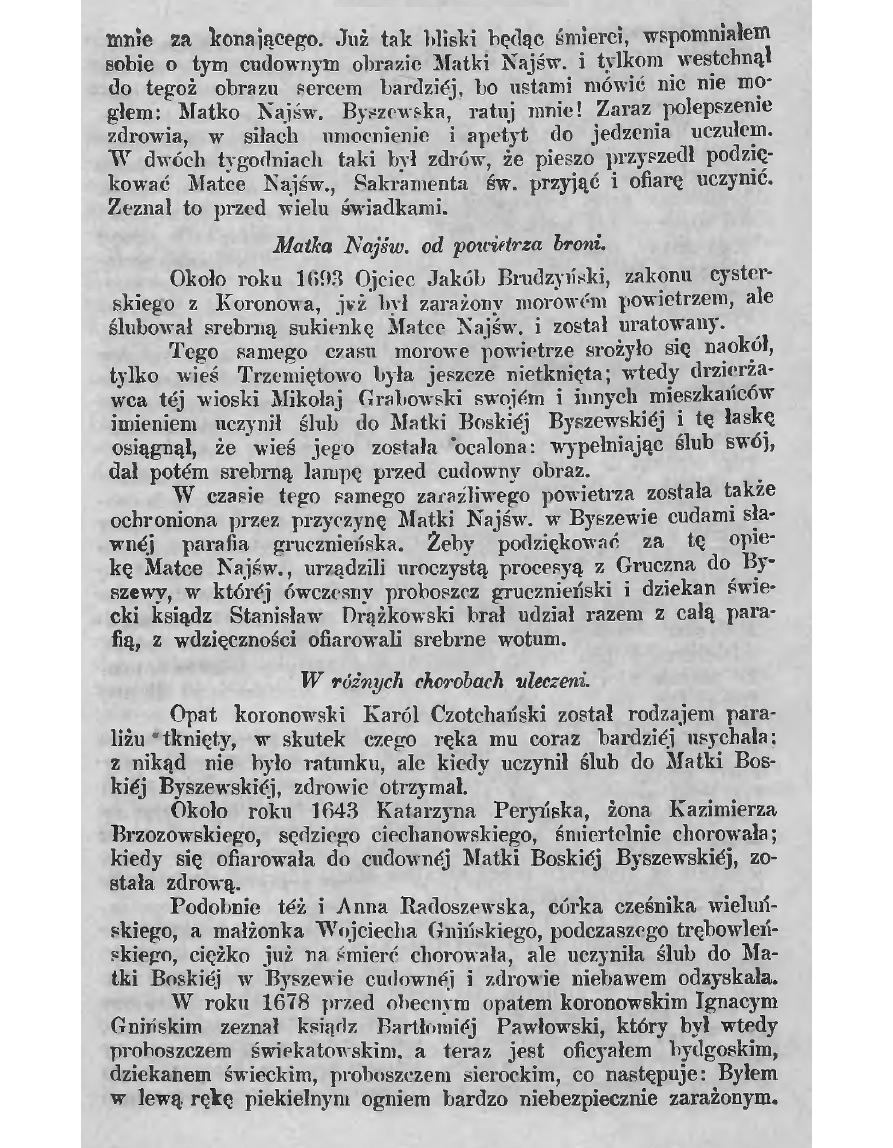 mnie za konającego. Już tak bliski będąc śmierci, wspomniałem
sobie o tym cudownym obrazie Matki Najśw. i tylkom westchnął
do tegoż obrazu sercem bardziéj, bo ustami mówić nic nie mo-
głem: Matko Najśw. Byszewska, ratuj mnie! Zaraz polepszenie
zdrowia, w siłach umocnienie i apetyt do jedzenia uczułem.
W dwóch tygodniach taki był zdrów, że pieszo przyszedł podzię-
kować Matce Najśw., Sakramenta św. przyjąć i ofiarę uczynić.
Zeznał to przed wielu świadkami.
Matka Najśw. od powietrza broni.
Około roku 1693 Ojciec Jakób Brudzyński, zakonu cyster-
skiego z Koronowa, już był zarażony morowém powietrzem, ale
ślubował srebrną sukienkę Matce Najśw. i został uratowany.
Tego samego czasu morowe powietrze srożyło się naokół,
tylko wieś Trzemiętowo była jeszcze nietknięta; wtedy drzierża-
wca téj wioski Mikołaj Grabowski swojém i innych mieszkańców
imieniem uczynił ślub do Matki Boskiéj Byszewskiéj i tę łaskę
osiągnął, że wieś jego została ocalona: wypełniając ślub swój,
dał potém srebrną lampę przed cudowny obraz.
W czasie tego samego zaraźliwego powietrza została także
ochroniona przez przyczynę Matki Najśw. w Byszewie cudami sła-
wnéj parafia grucznieńska. Żeby podziękować za tę opie-
kę Matce Najśw., urządzili uroczystą procesyą z Gruczna do By-
szewy, w któréj ówczesny proboszcz grucznieński i dziekan świe-
cki ksiądz Stanisław Drążkowski brał udział razem z całą para-
fią, z wdzięczności ofiarowali srebrne wotum.
W różnych chorobach uleczeni.
Opat koronowski Karól Czotchański został rodzajem para-
liżu tknięty, w skutek czego ręka mu coraz bardziéj usychała;
z nikąd nie było ratunku, ale kiedy uczynił ślub do Matki Bos-
kiéj Byszewskiéj, zdrowie otrzymał.
Około roku 1643 Katarzyna Peryńska, żona Kazimierza
Brzozowskiego, sędziego ciechanowskiego, śmiertelnie chorowała;
kiedy się ofiarowała do cudownéj Matki Boskiéj Byszewskiéj, zo-
stała zdrową.
Podobnie téż i Anna Radoszewska, córka cześnika wieluń-
skiego, a małżonka Wojciecha Gnińskiego, podczaszego trębowleń-
skiego, ciężko już na śmierć chorowała, ale uczyniła ślub do Ma-
tki Boskiéj w Byszewie cudownéj i zdrowie niebawem odzyskała.
W roku 1678 przed obecnym opatem koronowskim Ignacym
Gnińskim zeznał ksiądz Bartłomiéj Pawłowski, który był wtedy
proboszczem świekatowskim, a teraz jest oficyałem bydgoskim,
dziekanem świeckim, proboszczem sierockim, co następuje: Byłem
w lewą rękę piekielnym ogniem bardzo niebezpiecznie zarażonym.